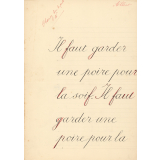 Il faut garder
une poire pour
la soif. Il faut
garder une
poire pour la